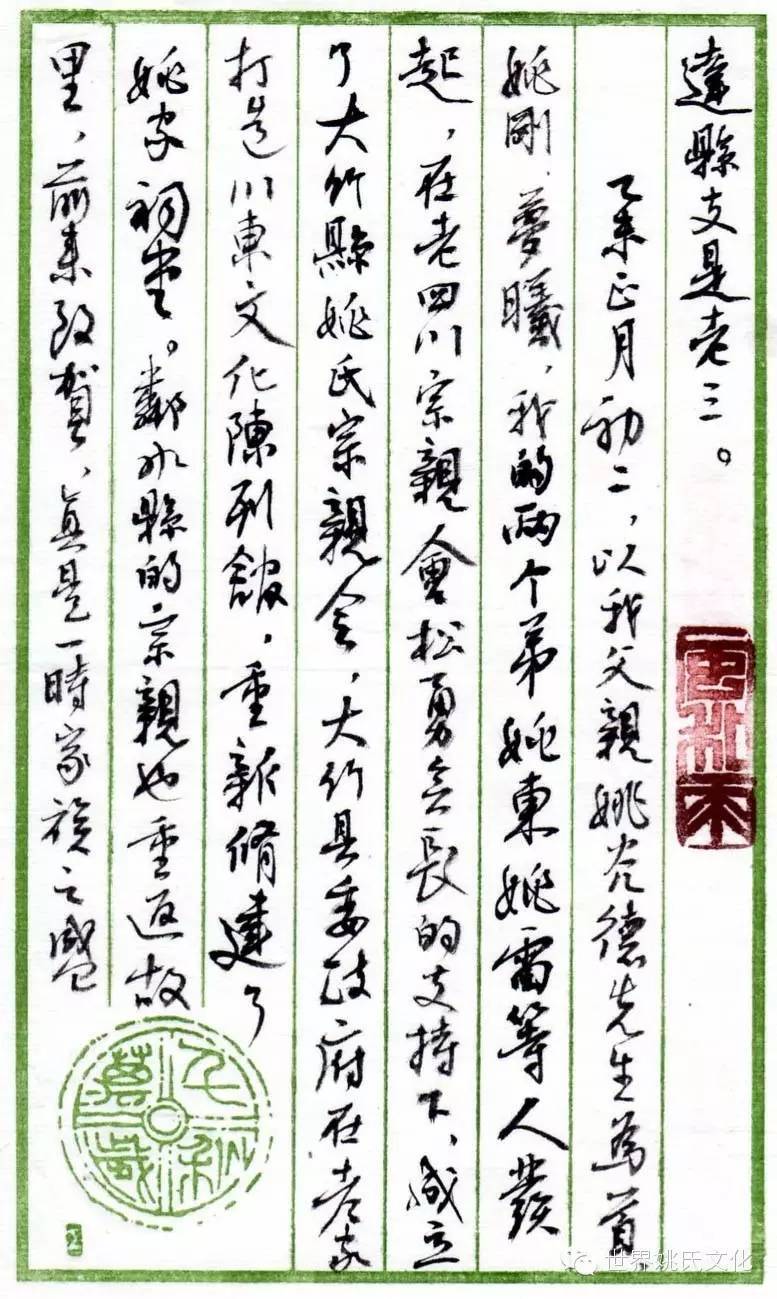 達縣支是老三。
乙未正月初二，以我父親姚光德先生為首，
姚剛、夢曦，我的兩个弟姚東姚雷等人發
起，在老四川宗親會松勇会長的支持下，成立
了大竹縣姚氏宗親会，大竹县委政府在老家
打造川東文化陳列館，重新脩建了
姚家祠堂。鄰水縣的宗親也重返故
里，前来致賀，真是一時家族之盛
世界姚氏文化